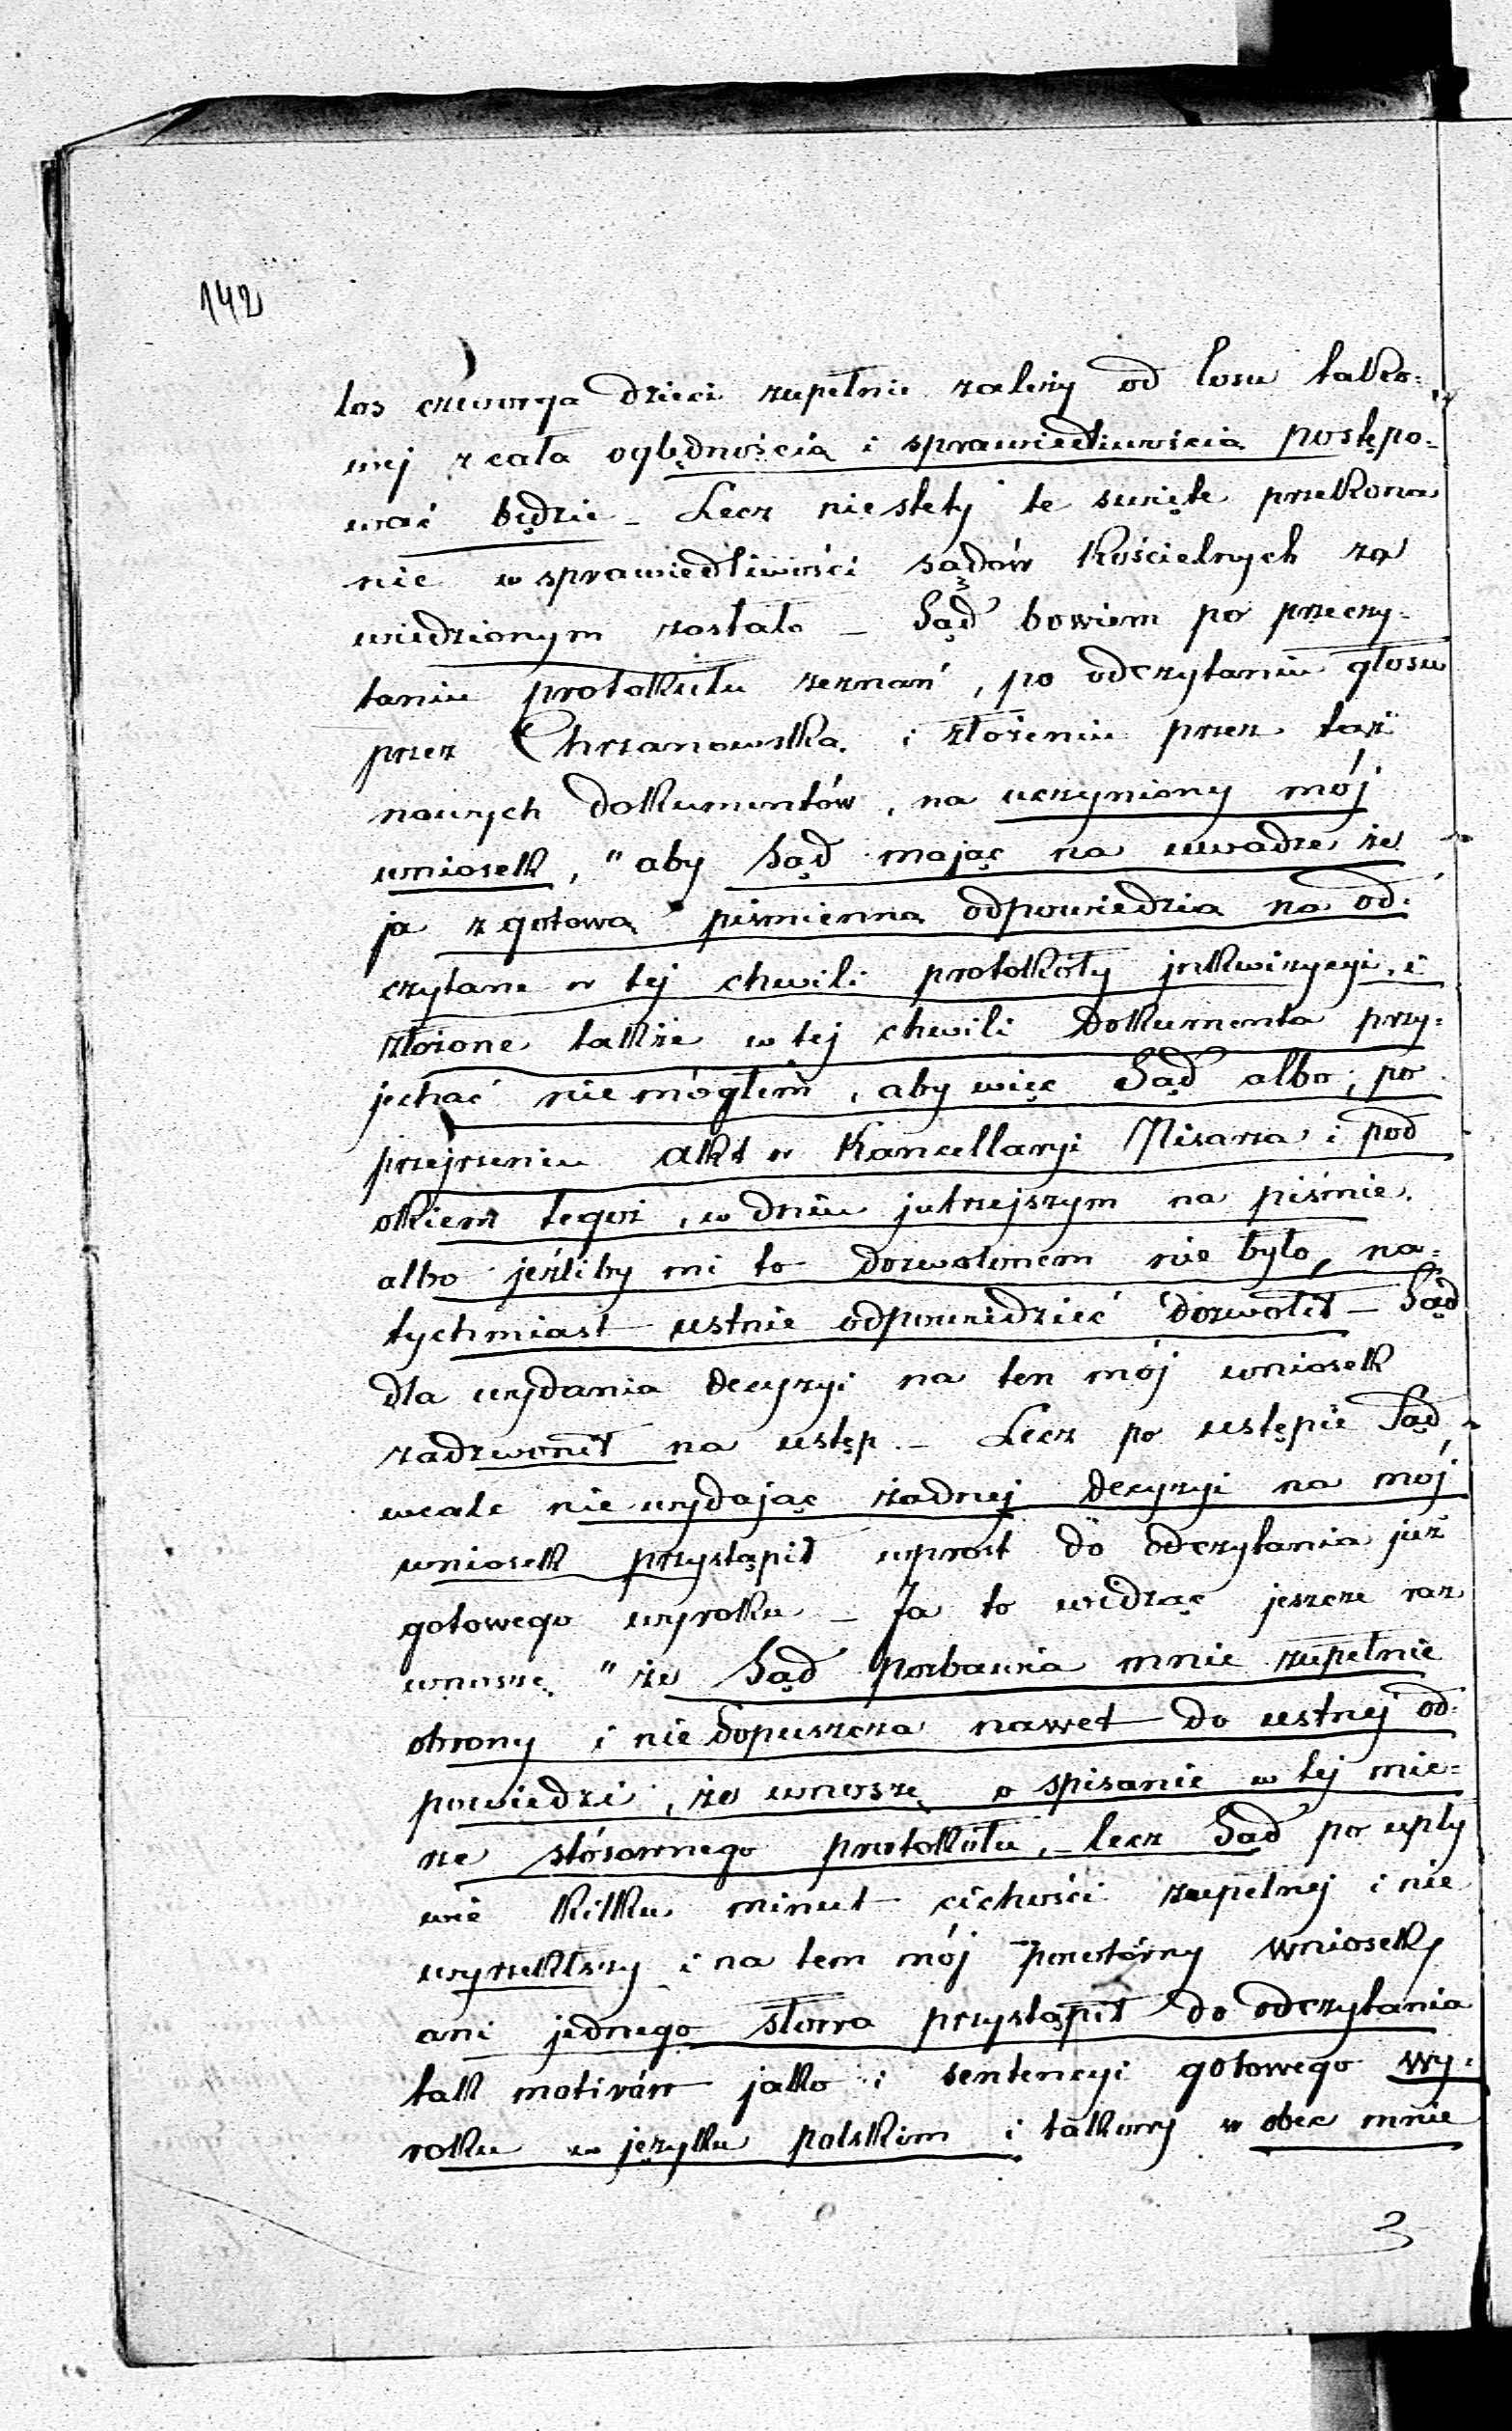 142
los czworga dzieci zupełnie zależy od losu tako=
wej z całą oględnością i sprawiedliwością postępo=
wać będzie – Lecz niestety te święte przekona
nie w sprawiedliwości sądów Kościelnych za
wiedzionym zostało – Sąd bowiem po przeczy=
taniu protokułu zeznań, po odczytaniu głosu
przez Chrzanowską i złożeniu przez taż
nowych dokumentów, na uczyniony mój
wniosek, "aby Sąd mając na uwadze że
ja z gotową piśmienną odpowiedzią na od=
czytane w tej chwili protokóły inkwizycyi, i
złożone także w tej chwili Dokumenta przy=
jechać nie mógłem, aby więc Sąd albo, po
przejrzeniu akt w Kancellaryi Pisarza i pod
okiem tegoż, w dniu jutrzejszym na piśmie,
albo jeźliby mi to dozwolonem nie było, na=
tychmiast ustnie odpowiedzieć dozwolił – Sąd
dla wydania decyzyi na ten mój wniosek
zadzwonił na ustęp – Lecz po ustępie Sąd
wcale nie wydając żadnej decyzyi na mój
wniosek przystąpił wprost do odczytania już
gotowego wyroku – Ja to widząc jeszcze raz
wnoszę "że Sąd pozbawia mnie zupełnie
obrony i nie dopuszcza nawet do ustnej od=
powiedzi, że wnoszę o spisanie w tej mie=
rze stósownego protokółu, – lecz Sąd po upły
wie kilku minut cichości zupełnej i nie
wyrzekłszy i na tem mój powtórny wniosek
ani jednego słowa przystąpił do odczytania
tak motivów jako i sentencyi gotowego wy=
roku w języku polskim i takowy w obec mnie
3